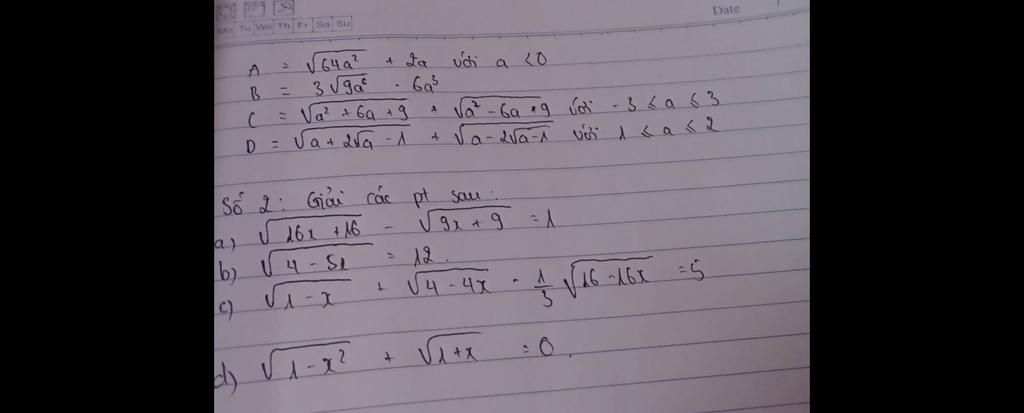 Date
Mo Tu We Th Fr Sa Su
A = √64a² + 2a với a < 0
B = 3√9a⁶ - 6a³
C = √a² + 6a + 9 + √a² - 6a + 9 với -3 ≤ a ≤ 3
D = √a + 2√a - 1 + √a - 2√a - 1 với 1 ≤ a ≤ 2
Số 2: Giải các pt sau:
a) √16x + 16 - √9x + 9 = 1
b) √4 - 5x = 12.
c) √1 - x + √4 - 4x - 1/3 √16 - 16x = 5
d) √1 - x² + √1 + x = 0.